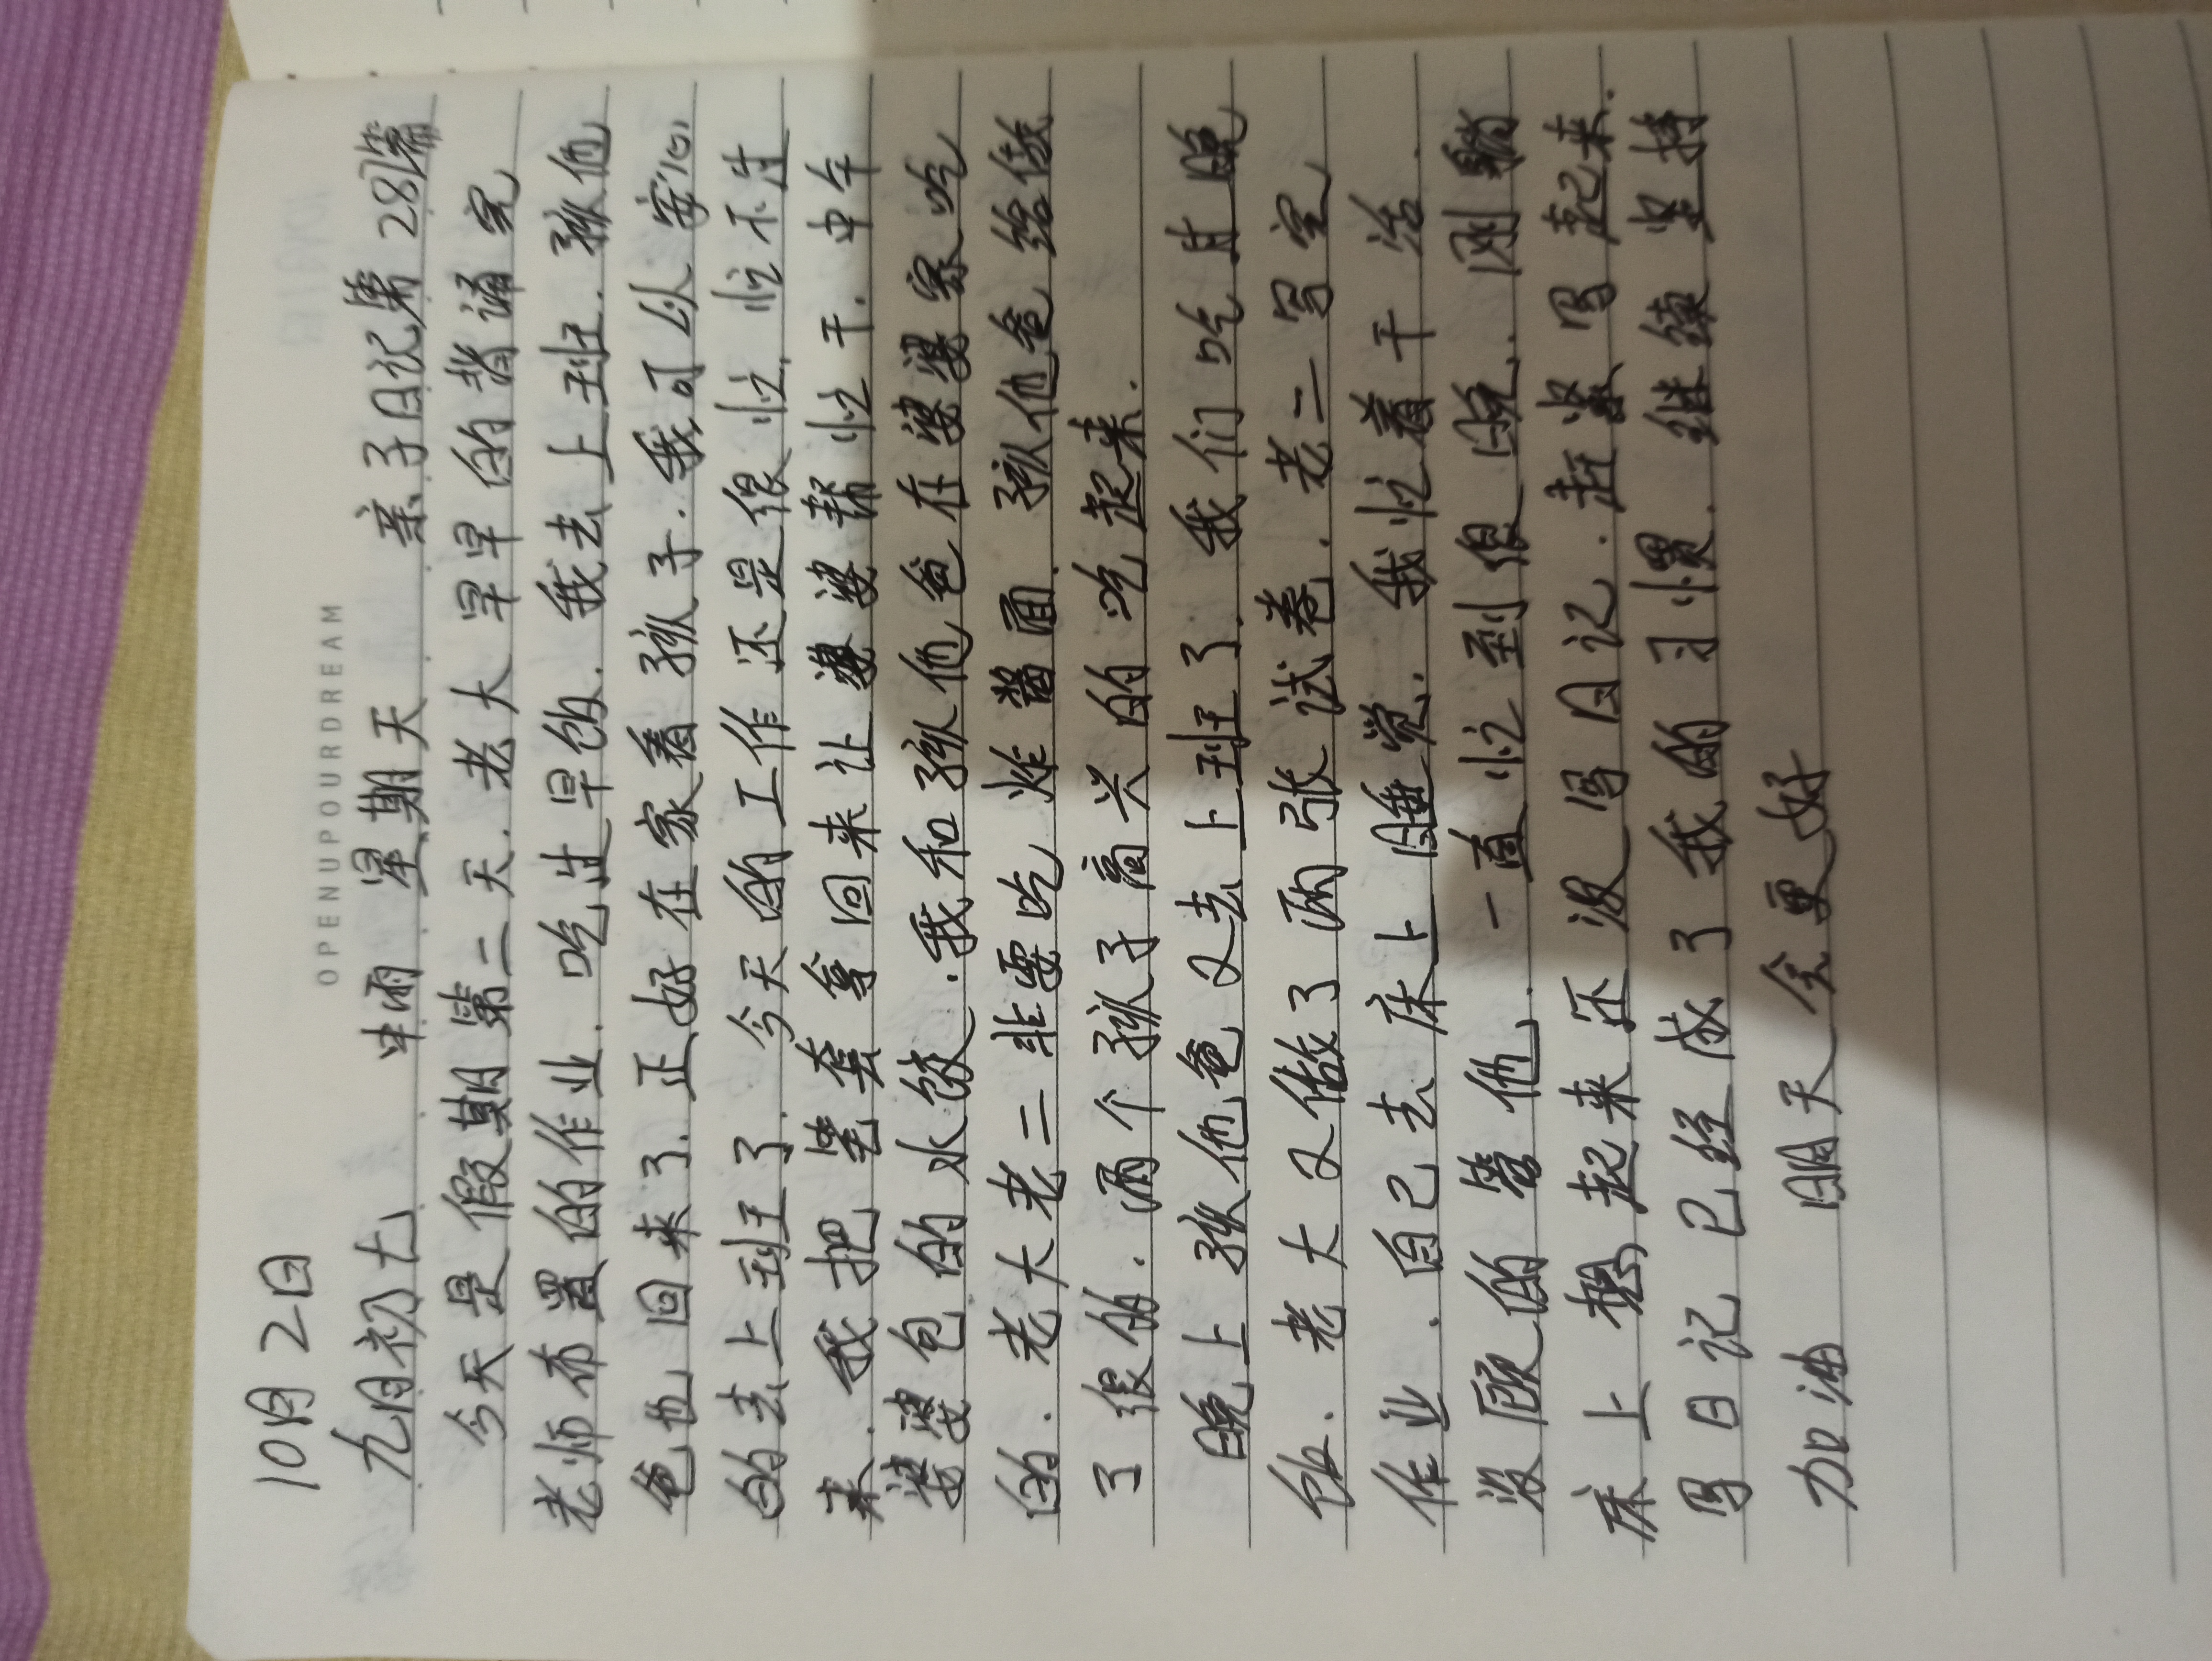 OPENUPOURDREAM
10月2日
九月初七 中雨 星期天 亲子日记第28篇
今天是假期第二天.老大早早的背诵完
老师布置的作业.吃过早饭.我去上班.孩他
爸也回来了.正好在家看孩子.我可以安心
的去上班了.今天的工作还是很忙.忙不过
来.我把笔套拿回来让婆婆帮忙干.中午
婆婆包的水饺.我和孩他爸在婆婆家吃
的.老大老二非要吃炸酱面.孩他爸给做
了很的.两个孩子高兴的吃起来.
晚上孩他爸又去上班了.我们吃过晚
饭.老大又做了两张试卷.老二写完
作业.自己去床上睡觉.我忙着干活.
没顾的管他.一直忙到很晚.刚躺
床上想起来还没写日记.赶紧写起来.
写日记已经成了我的习惯.继续坚持
加油 明天会更好